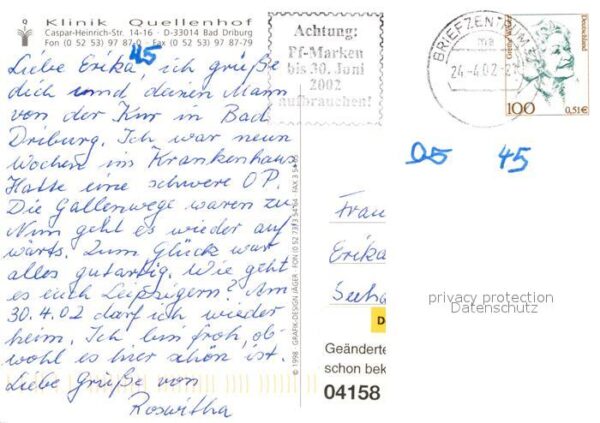 Klinik Quellenhof
Caspar-Heinrich-Str. 14-16 · D-33014 Bad Driburg
Fon (0 52 53) 97 87-0 Fax (0 52 53) 97 87-79
45
Liebe Erika, ich grüße
dich und deinen Mann
von der Kur in Bad
Driburg. Ich war neun
Wochen im Krankenhaus
Hatte eine schwere OP.
Die Gallenwege waren zu
Nun geht es wieder auf
wärts. Zum Glück war
alles gutartig. Wie geht
es euch Leipzigern? Am
30.4.02 darf ich wieder
heim. Ich bin froh, ob-
wohl es hier schön ist.
Liebe Grüße von
Roswitha
© 1998 GRAFIK-DESIGN JÄGER
Achtung:
Pf-Marken
bis 30. Juni
2002
aufbrauchen!
BRIEFZENTRUM
24.-4.02
Deutschland
100
0,51€
45
Frau
Erika
privacy protection
Datenschutz
Geänderte
schon bek
04158